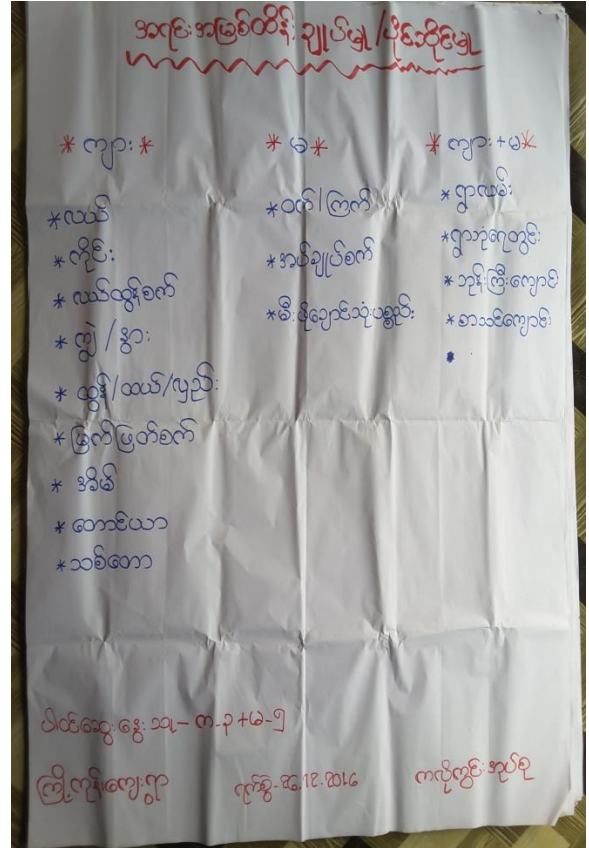 အရင်းအမြစ်ထိန်းချုပ်မှု/ပိုင်ဆိုင်မှု
* ကျား *
* လယ်
* ကိုင်း
* လယ်ထွန်စက်
* ကျွဲ / နွား
* ထွန်/ထယ်/လှည်း
* မြက်ဖြတ်စက်
* အိမ်
* တောင်ယာ
* သစ်တော
* မ *
* ဝက်/ကြက်
* အပ်ချုပ်စက်
* မီးဖိုချောင်သုံးပစ္စည်း
* ကျား+မ *
* ရွာလမ်း
* ရွာဘုံရေတွင်း
* ဘုန်းကြီးကျောင်း
* စာသင်ကျောင်း
ပါဝင်ဆွေးနွေးသူ - က-၃+မ-၅
ကြို့ကုန်းကျေးရွာ
ရက်စွဲ-26.12.2016
ကလိုကွင်းအုပ်စု